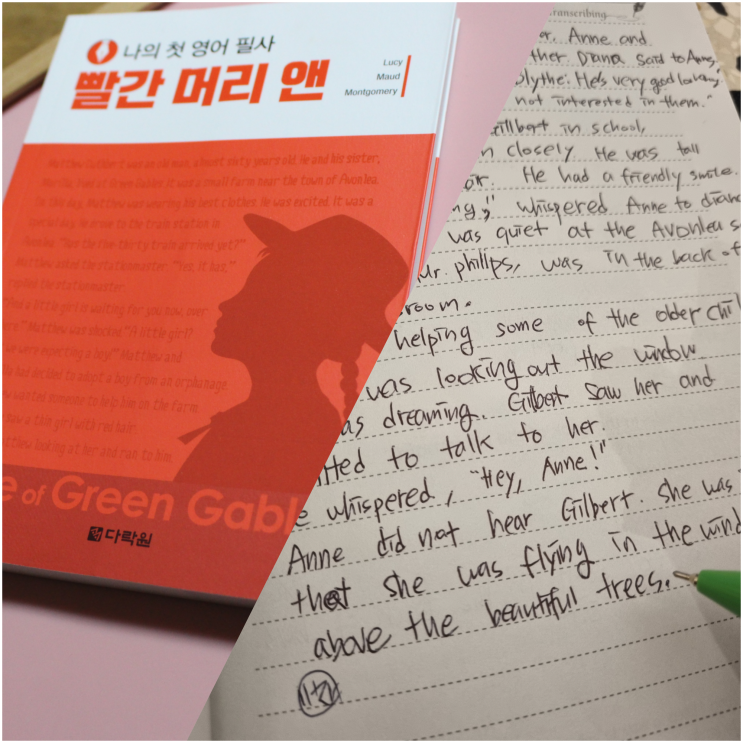 나의 첫 영어 필사
빨간 머리 앤
Lucy
Maud
Montgomery
Matthew Cuthbert was an old man, almost sixty years old. He and his sister,
Marilla, lived at Green Gables. It was a small farm near the town of Avonlea.
On this day, Matthew was wearing his best clothes. He was excited. It was a
special day. He drove to the train station in
Avonlea. "Has the five-thirty train arrived yet?"
Matthew asked the stationmaster. "Yes, it has,"
replied the stationmaster.
"And a little girl is waiting for you now, over
there." Matthew was shocked. "A little girl?
we were expecting a boy!" Matthew and
had decided to adopt a boy from an orphanage.
wanted someone to help him on the farm.
saw a thin girl with red hair.
Matthew looking at her and ran to him.
e of Green Gabl
다락원
ranscribing
or. Anne and
ther. Diana said to Anne,
Blythe. He's very good looking"
not interested in them."
Gilbert in school,
n closely He was tall
or. He had a friendly smile.
ng," whispered Anne to diana
was quiet at the Avonlea s
Mr. phillps, was in the back of
room.
helping some of the older chil
was looking out the window
as dreaming. Gilbert saw her and
ted to talk to her.
e whispered, "Hey, Anne!"
Anne did not hear Gilbert. she was
that she was flying in the wind
above the beautiful trees.